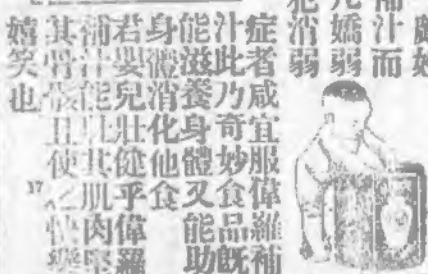 頗
補汁而
嬌弱
犯消弱
症者咸宜服偉羅補
汁此乃奇妙食品既
能滋養身體又能助
身體消化他食
若嬰兒壯健乎偉羅
補汁能壯其肌肉堅
其骨骼且使之快樂
嬉笑也
37